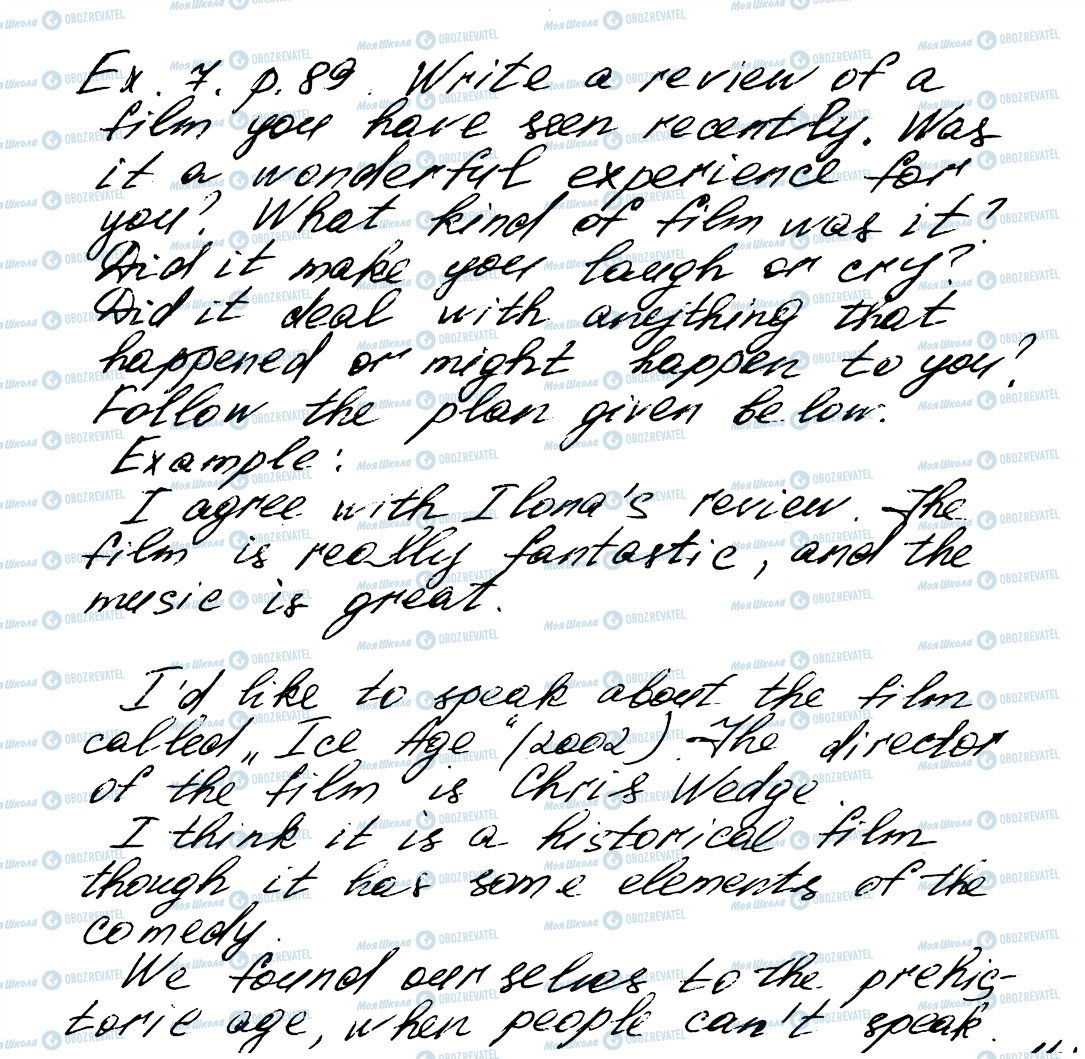 Ex. 7. p. 89. Write a review of a
film you have seen recently. Was
it a wonderful experience for
you? What kind of film was it?
Did it make you laugh or cry?
Did it deal with anything that
happened or might happen to you?
Follow the plan given below:
Example:
I agree with Ilona's review. The
film is really fantastic, and the
music is great.
I'd like to speak about the film
called „Ice Age“ (2002). The director
of the film is Chris Wedge.
I think it is a historical film
though it has some elements of the
comedy.
We found ourselves to the prehis-
toric age, when people can't speak.